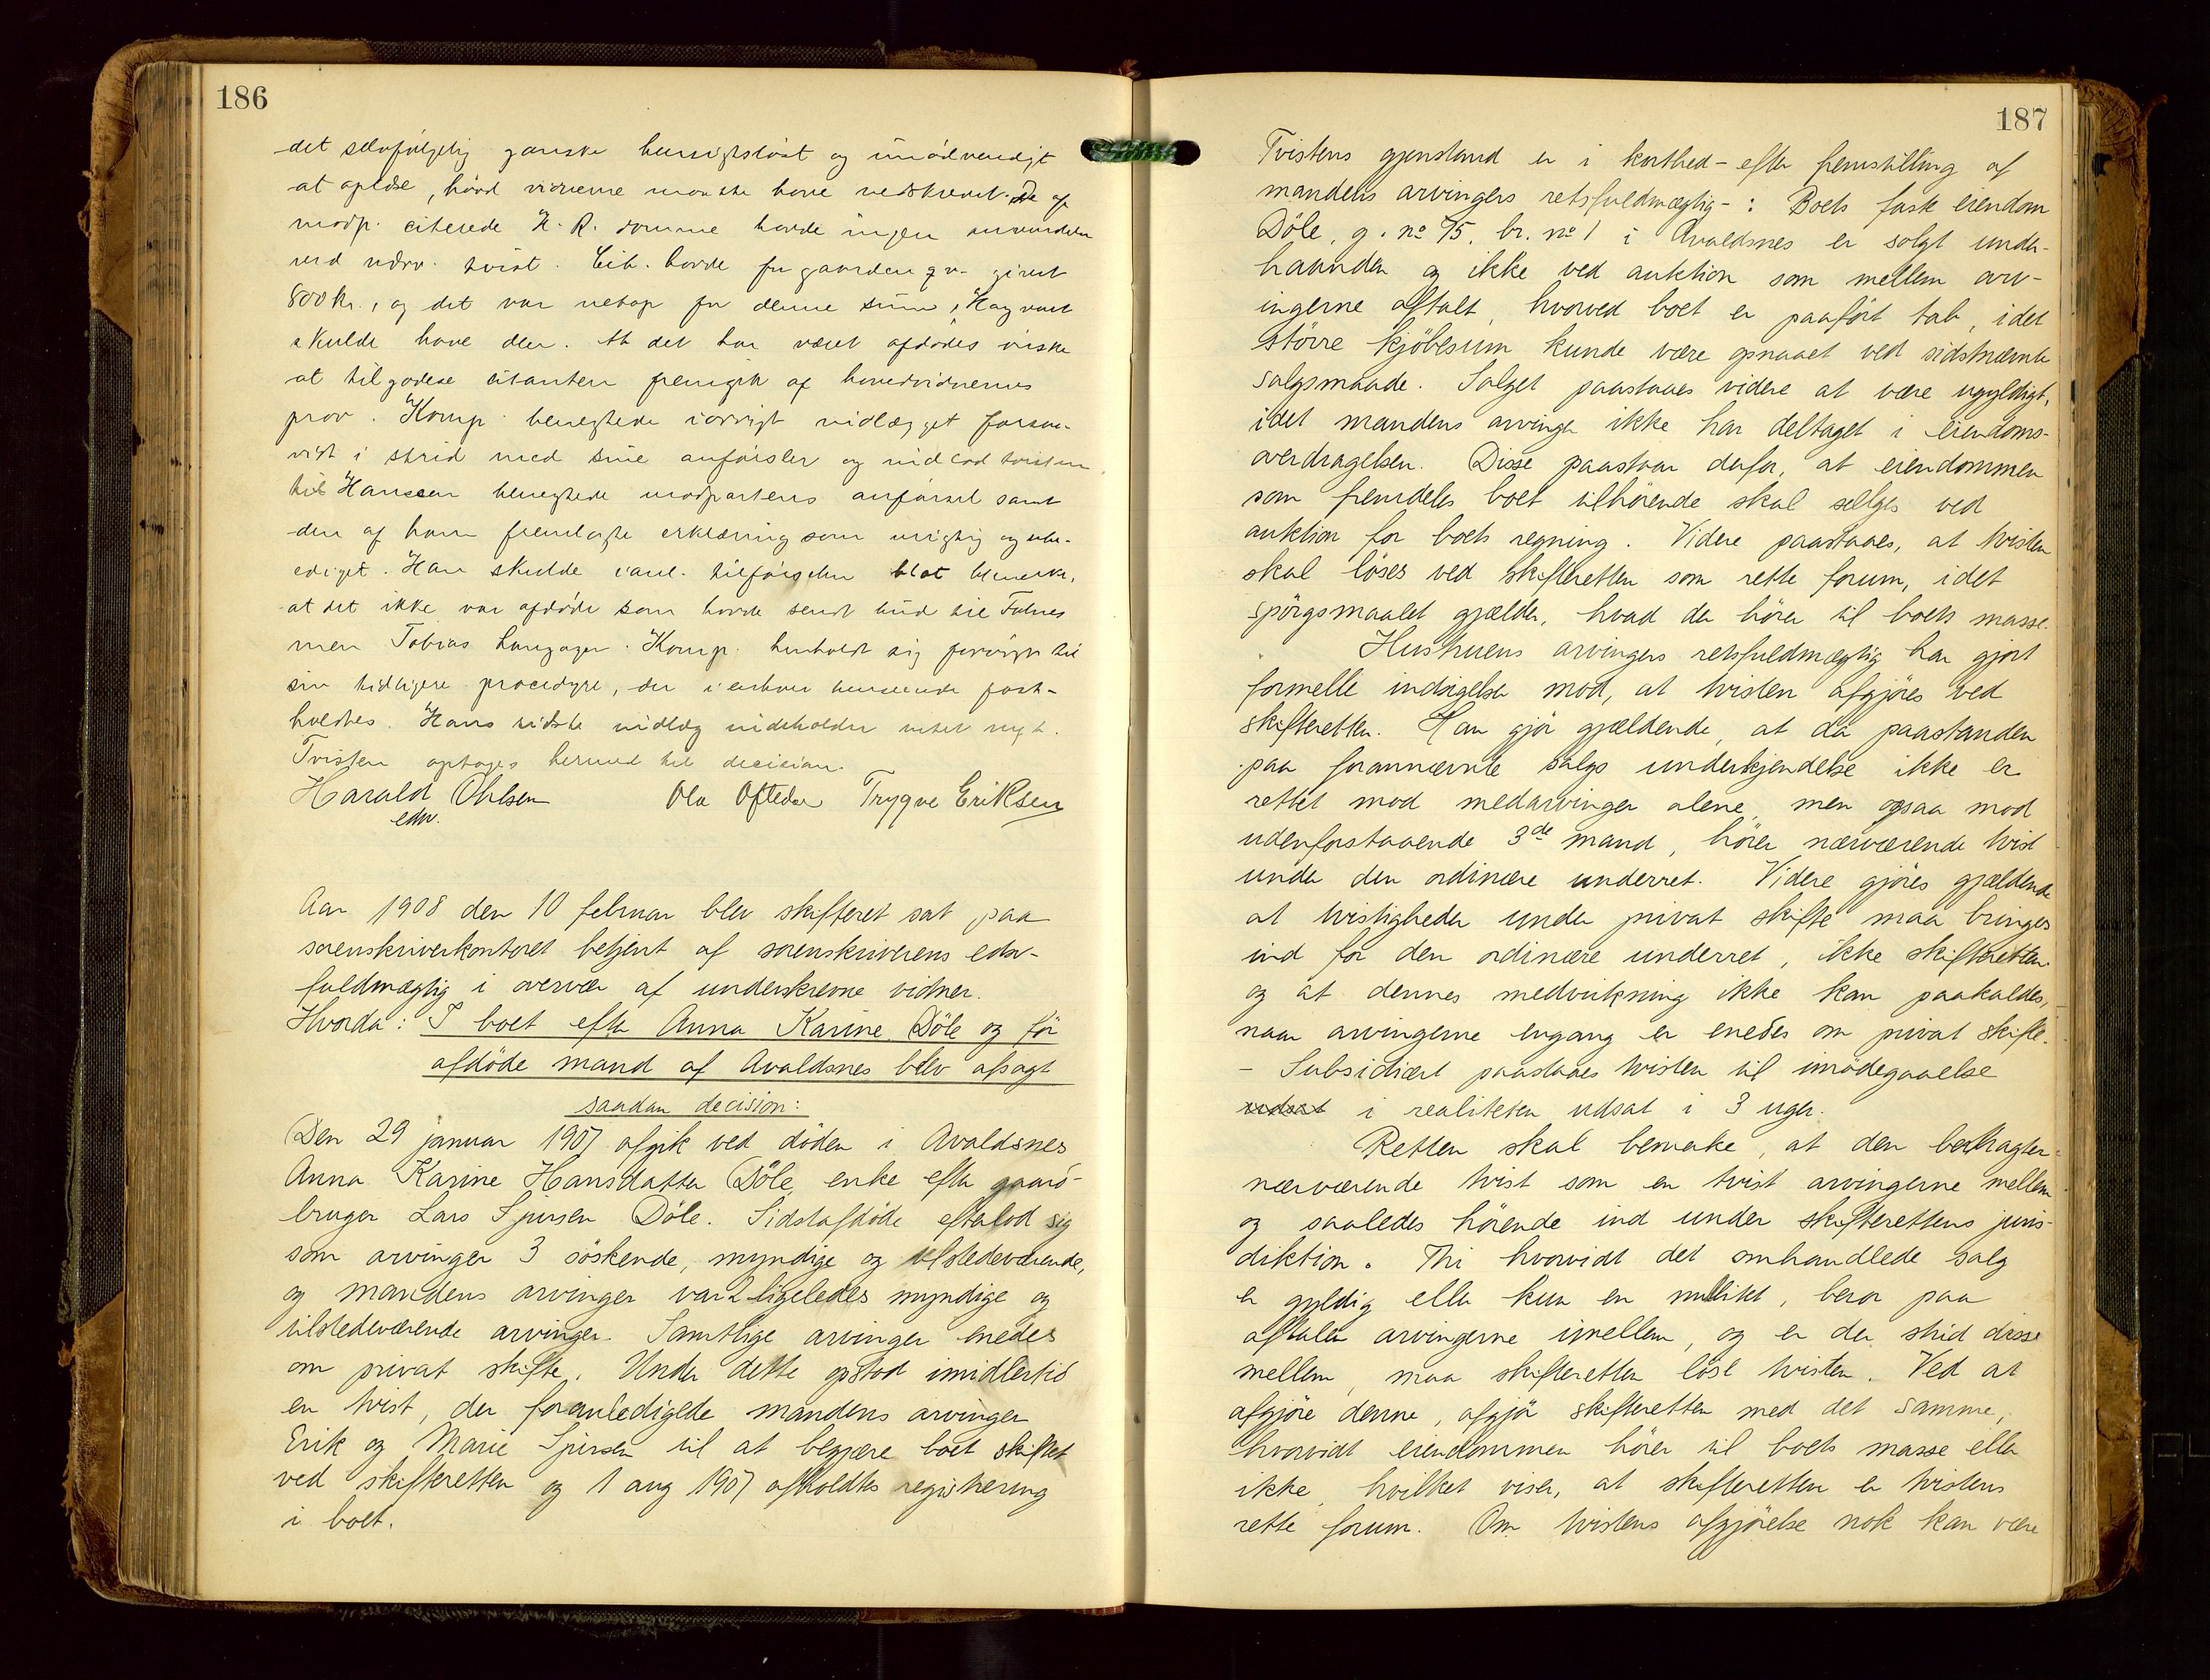 186
det selvfølgelig ganske hensigtsløst og unødvendigt
at oplæse, hvad vidnerne maatte have nedskrevet. De af
modp. citerede H. R. domme havde ingen anvendelse
ved nærv. tvist. Cit. havde for gaarden givet
800 kr., og det var netop for denne sum,
skulde have den. At det har været afdødes ønske
at tilgodese citanten fremgik af hovedvidnernes
prov. Komp. benegtede iøvrigt indlægget forsaa-
vidt i strid med sine anførsler og indlod tvisten.
Hanssen benegtede modpartens anførsel samt
den af ham fremlagte erklæring som urigtig og ube-
ediget. Han skulde tilførselen blot bemerke,
at det ikke var afdøde som havde sendt bud
men Tobias. Komp. henholdt sig forøvrigt til
sin tidligere procedyre, der i enhver henseende fast-
holdtes. Hans sidste indlæg indeholder intet nyt.
Tvisten optages hermed til decision.
Harald Ohlsen Ola Oftedal Trygve Eriksen
edsv.
Aar 1908 den 10 februar blev skifteret sat paa
sorenskriverkontoret betjent af sorenskriverens edsv-
fuldmægtig i overvær af underskrevne vidner.
Hvorda: I boet efter Anna Karine Döle og før
afdöde mand af Avaldsnes blev afsagt
saadan decision:
Den 29 januar 1907 afgik ved döden i Avaldsnes
Anna Karine Hansdatter Döle, enke efter gaard-
bruger Lars Sjursen Döle. Sidstafdöde efterlod sig
som arvinger 3 söskende, myndige og tilstedeværende,
og mandens arvinger var 2 ligeledes myndige og
tilstedeværende arvinger. Samtlige arvinger enedes
om privat skifte. Under dette opstod imidlertid
en tvist, der foranledigede mandens arvinger
Erik og Marie Sjursen til at begjære boet skiftet
ved skifteretten og 1 aug 1907 afholdtes registrering
i boet.
187
Tvistens gjenstand er i korthed - efter fremstilling af
mandens arvingers retsfuldmægtig - : Boets faste eiendom
Döle, g. no 75, br. no 1 i Avaldsnes er solgt under-
haanden og ikke ved auktion som mellem arv-
ingerne aftalt, hvorved boet er paafört tab, idet
större kjöbesum kunde være opnaaet ved sidstnævnte
salgsmaade. Salget paastaaes videre at være ugyldigt,
idet mandens arvinger ikke har deltaget i eiendoms-
overdragelsen. Disse paastaar derfor, at eiendommen
som fremdeles boet tilhörende skal selges ved
auktion for boets regning. Videre paastaaes, at tvisten
skal löses ved skifteretten som rette forum, idet
spörgsmaalet gjælder, hvad der hörer til boets masse.
Hustruens arvingers retsfuldmægtig har gjort
formelle indsigelser mod, at tvisten afgjöres ved
skifteretten. Han gjör gjældende, at da paastanden
paa forannævnte salgs underkjendelse ikke er
rettet mod medarvinger alene, men ogsaa mod
udenforstaaende 3de mand, hörer nærværende tvist
under den ordinære underret. Videre gjöres gjældende
at tvistigheder under privat skifte maa bringes
ind for den ordinære underret, ikke skifteretten
og at dennes medvirkning ikke kan paakaldes,
naar arvingerne engang er enedes om privat skifte.
- Subsidiært paastaaes tvisten til imödegaaelse
udsat i realiteten udsat i 3 uger.
Retten skal bemerke, at den betragter
nærværende tvist som en tvist arvingerne mellem
og saaledes hörende ind under skifterettens juris-
diktion. Thi hvorvidt det omhandlede salg
er gyldig eller kun en nullitet, beror paa
aftalen arvingerne imellem, og er der strid disse
mellem, maa skifteretten löse tvisten. Ved at
afgjöre denne, afgjör skifteretten med det samme,
hvorvidt eiendommen hörer til boets masse eller
ikke, hvilket viser, at skifteretten er tvistens
rette forum. Om tvistens afgjörelse nok kan være